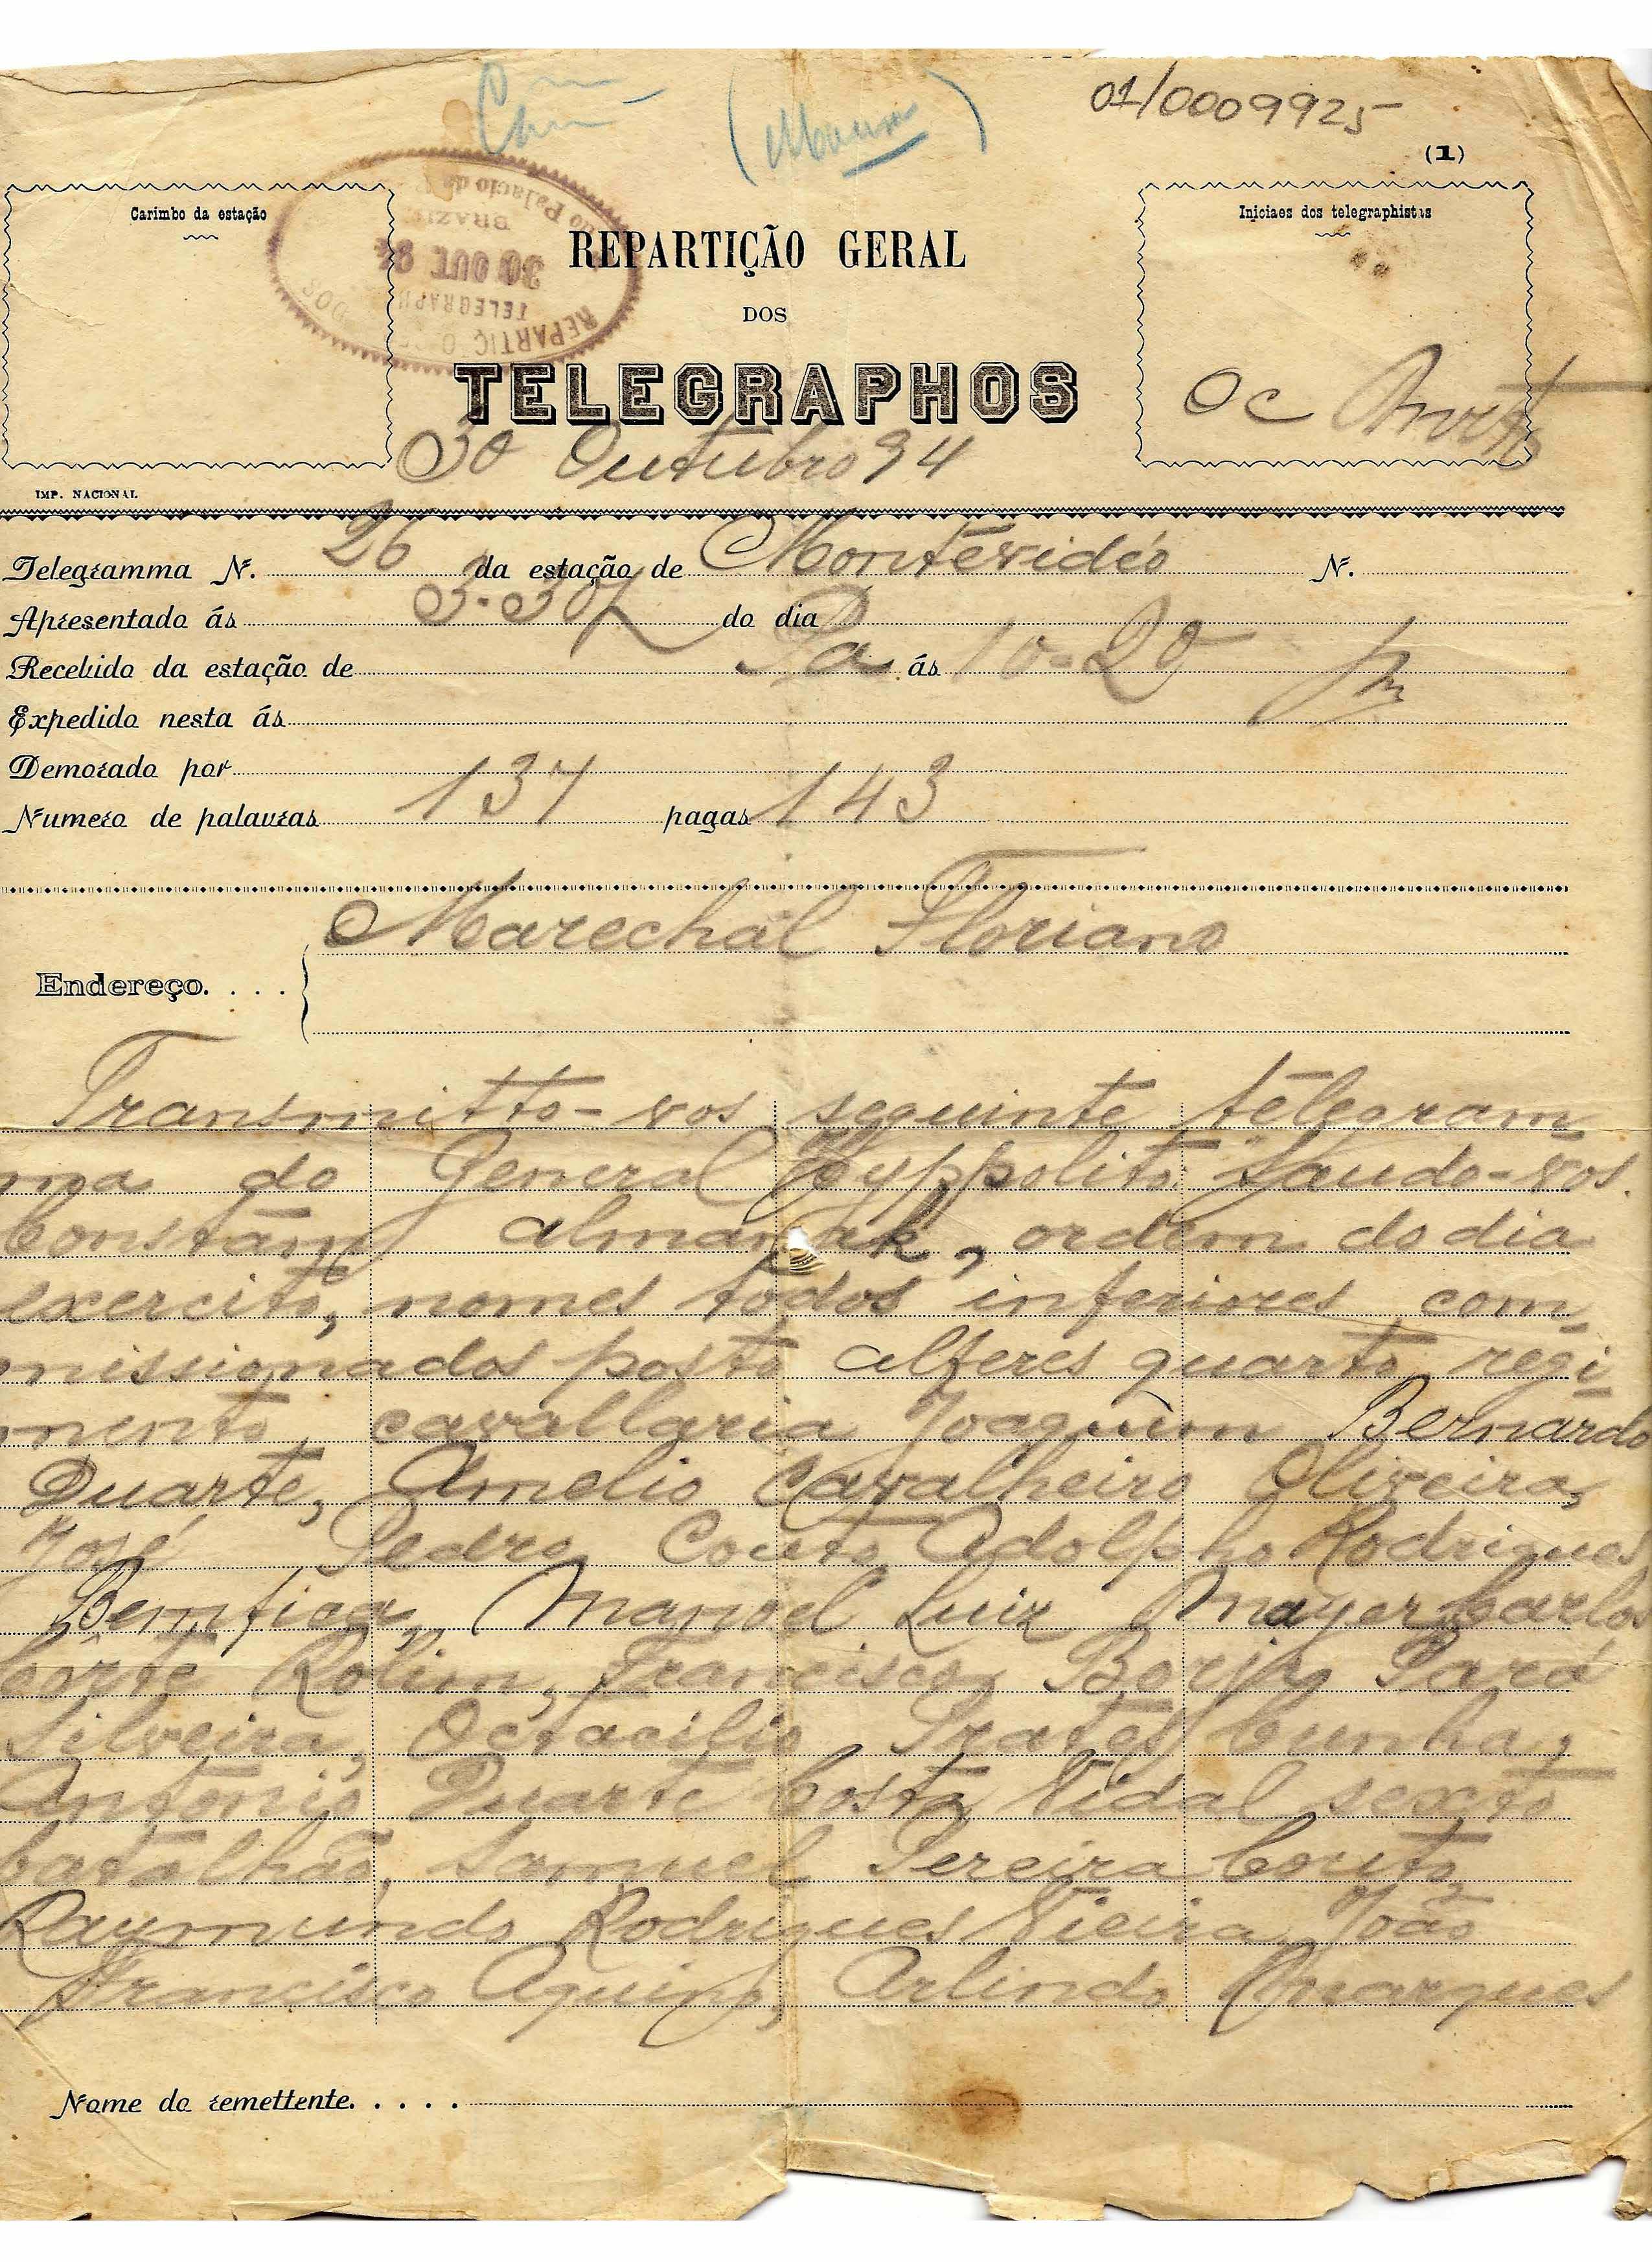 01/0009925
(1)
Carimbo da estação
Iniciaes dos telegraphistas
REPARTIÇÃO GERAL
DOS
TELEGRAPHOS
30 OUT 94
BRAZIL
30 Outubro 94
IMP. NACIONAL
Telegramma N. 26 da estação de Montevidéo N.
Apresentado ás 3.30 do dia
Recebido da estação de Pa ás 10-20
Expedido nesta ás
Demorado por
Numero de palavras 137 pagas 143
Marechal Floriano
Endereço. . . .
Transmitto-vos seguinte telegram
ma do General Hyppolito: Saudo-vos.
Constam almanak, ordem do dia
exercito, nomes todos inferiores com
missionados posto alferes quarto regi
mento cavallaria Joaquim Bernardo
Duarte, Amelio Cavalheiro Oliveira,
José Pedro Couto, Adolpho Rodrigues
Bemfica, Manoel Luiz Mayer, Carlos
Côrte Rolim, Francisco Borja Pará
Silveira, Octacilio Prates Cunha,
Antonio Duarte Costa Vidal sexto
batalhão, Samuel Pereira Couto,
Raymundo Rodrigues Vieira, João
Francisco Aquino, Arlindo Marques
Nome do remettente. . . . .